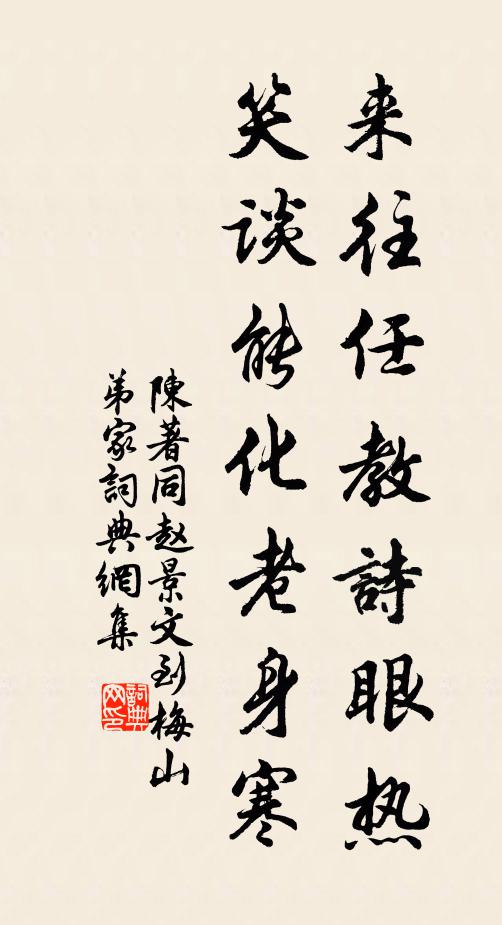 来往任教詩眼热
笑談能化老身寒
陳著同赵景文到梅山
弟家詞典網集
詞典
网印